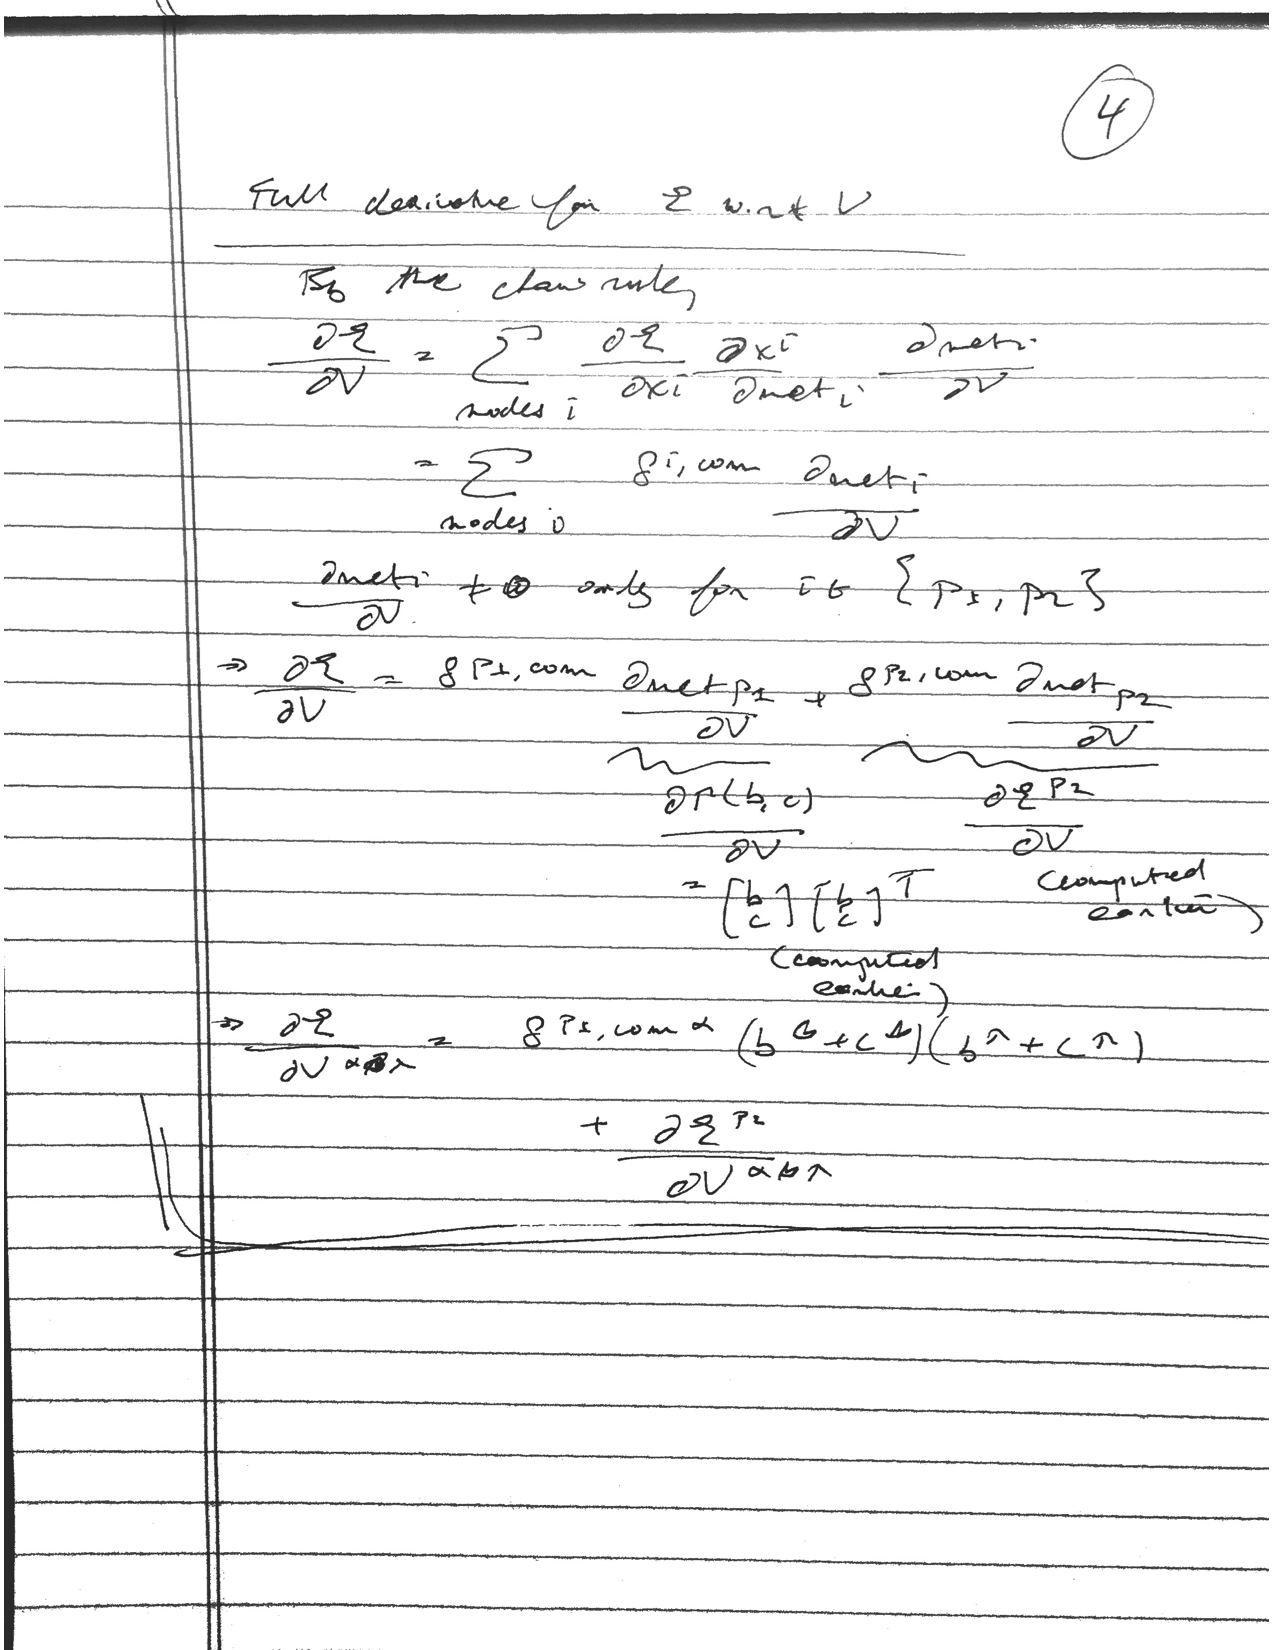 4
Full derivative for ξ w.r.t V
By the chain rule,
∂ξ/∂V = Σ_{nodes i} ∂ξ/∂x^i ∂x^i/∂net_i ∂net_i/∂V
= Σ_{nodes i} δ^{i, com} ∂net_i/∂V
∂net_i/∂V ≠ 0 only for i ∈ {P1, P2}
⇒ ∂ξ/∂V = δ^{P1, com} ∂net_{P1}/∂V + δ^{P2, com} ∂net_{P2}/∂V
∂Γ(b, c)/∂V ∂ξ^{P2}/∂V
= [b c] [b c]^T (computed earlier)
(computed earlier)
⇒ ∂ξ/∂V^{αβλ} = δ^{P1, com α} (b^β + c^β)(b^λ + c^λ)
+ ∂ξ^{P2}/∂V^{αβλ}